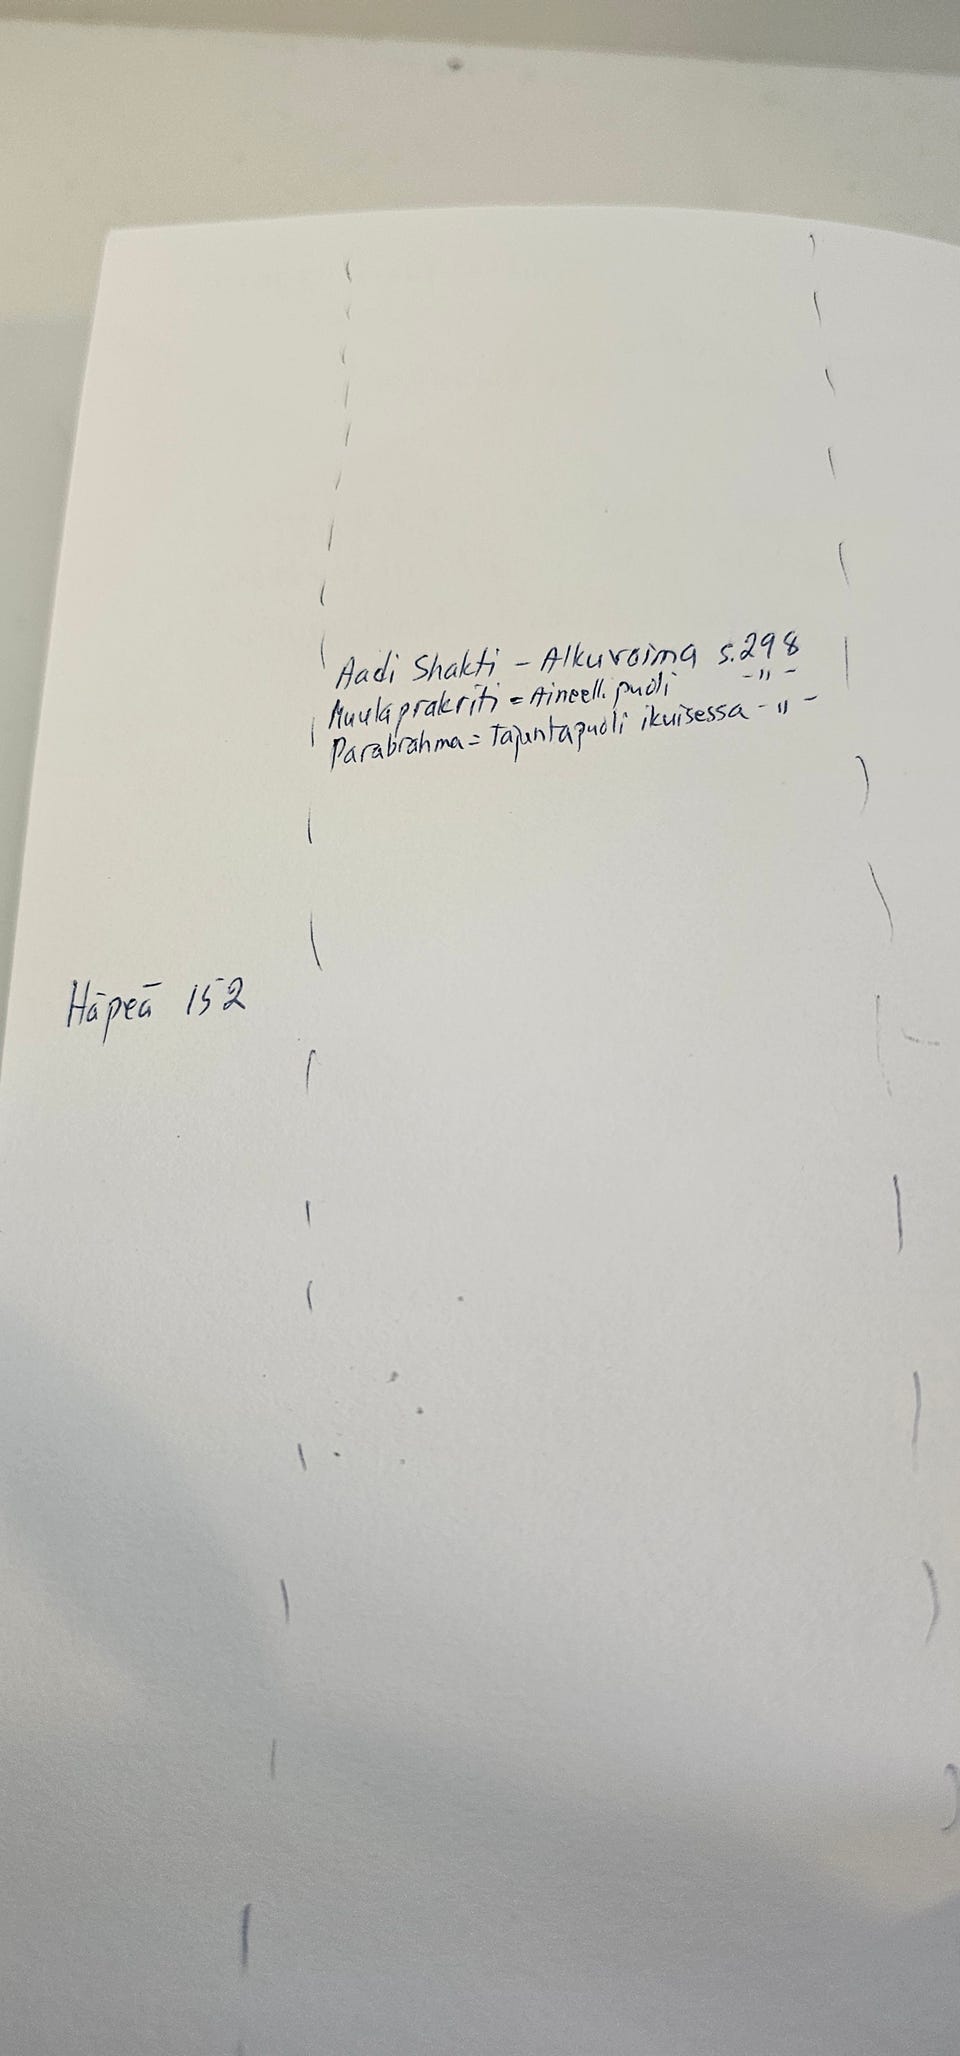 Aadi Shakti - Alkuvoima s.298
Muulaprakriti = Aineell. puoli -"-
Parabrahma = Tajuntapuoli ikuisessa -"-
Häpeä 152